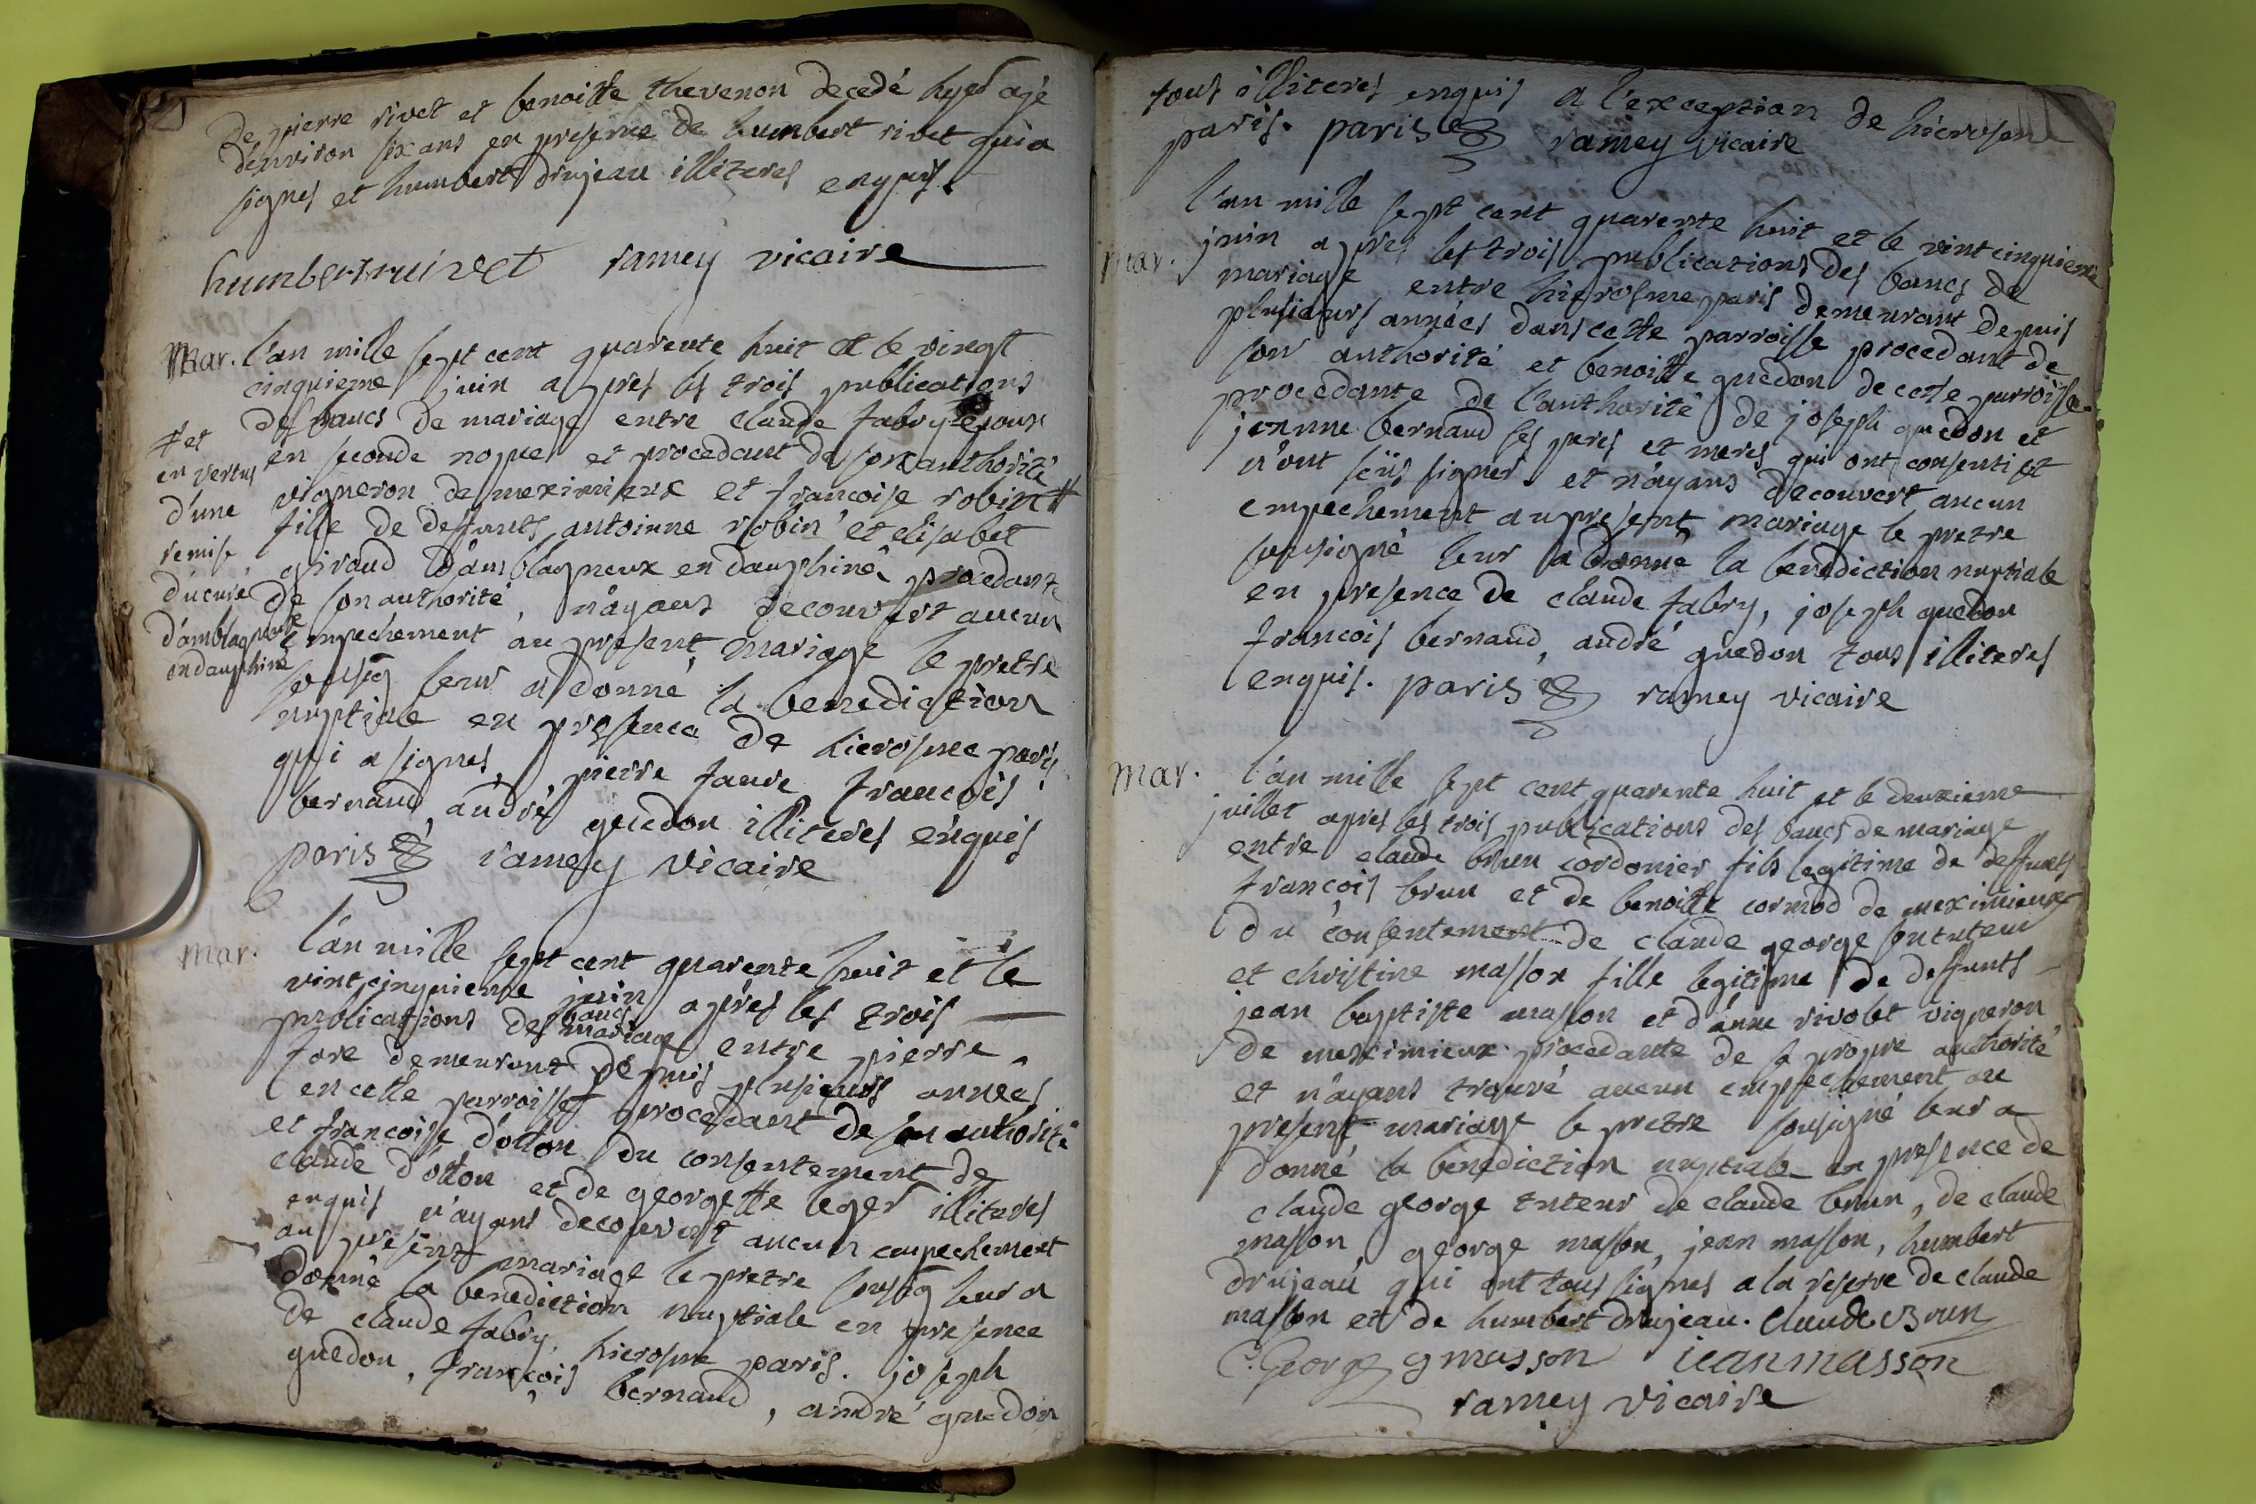 de pierre rivet et benoitte thevenon decedé hyer agé
d'environ six ans en presence de humbert rivet qui a
signes et humbert drujeau illiteres enquis.
humbert ruivet ramey vicaire
Mar. l'an mille sept cent quarente huit et le vingt
cinquieme juin apres les trois publications
des bancs de mariage entre claude fabry epoux
en seconde nopce et procedant de son authorité
vigneron de meximieux et francoise robin #
fille de deffunts antoinne robin et elisabet
giraud d'amblagneux en dauphiné procedante
de son authorité, n'ayans decouvert aucun
empechement au present mariage le pretre
sousig leur a donné la benediction
nuptiale en presence de hierosme paris
qui a signes, pierre faure francois
bernaud, andré guedon illiteres enquis
paris ramey vicaire
# et
en vertus
d'une
remise
du curé
d'amblagneux
en dauphiné
mar. l'an mille sept cent quarente huit et le
vint cinquieme juin apres les trois
publications des bancs mariage entre pierre
fore demeurant depuis plusieurs années
en cette parroisse procedant de son authorité
et francoise d'otton du consentement de
claude d'otton et de georgette leger illiteres
enquis n'ayans decouvert aucun empechement
au present mariage le pretre sousig leur a
donné la benediction nuptiale en presence
de claude fabry, hierosme paris. joseph
guedon, francois bernaud, andré guedon
tous illiteres enquis a l'exception de hierosme
paris. paris ramey vicaire
mar. l'an mille sept cent quarente huit et le vint cinquieme
juin apres les trois publications des bancs de
mariage entre hierosme paris demeurant depuis
plusieurs années dans cette parroisse procedant de
son authorité et benoitte guedon de cette parroisse
procedante de l'authorité de joseph guedon et
jeanne bernaud ses peres et meres qui ont consenti et
n'ont sçus signer. et n'ayans decouvert aucun
empechement au present mariage le pretre
sousigné leur a donné la benediction nuptiale
en presence de claude fabry, joseph guedon
francois bernaud, andré guedon tous illiteres
enquis. paris ramey vicaire
mar. l'an mille sept cent quarente huit et le deuxieme
juillet apres les trois publications des bancs de mariage
entre claude brun cordonier fils legitime de deffunts
françois brun et de benoitte cormod de meximieux
du consentement de claude george son tuteur
et christine masson fille legitime de deffunts
jean baptiste masson et d'anne rivolet vigneron
de meximieux procedante de sa propre authorité
et n'ayans trouvé aucun empechement au
present mariage le pretre sousigné leur a
donné la benediction nuptiale en presence de
claude george tuteur de claude brun, de claude
masson, george masson, jean masson, humbert
drujeau qui ont tous signes a la reserve de claude
masson et de humbert drujeau. Claude Brun
C. George g masson jean masson
ramey vicaire